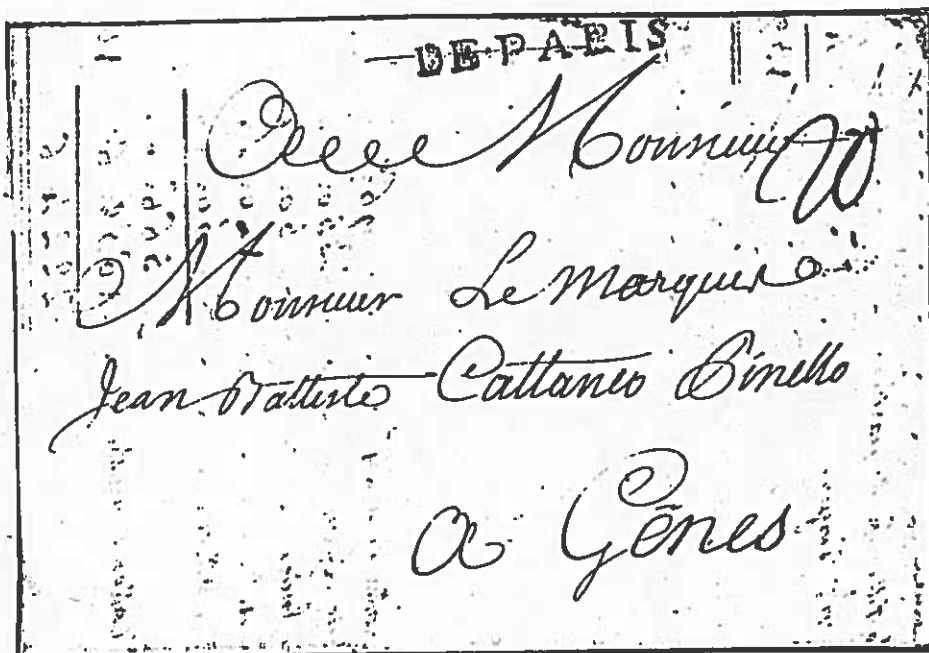 DE PARIS
A Monsieur
Monsieur Le Marquis
Jean Battiste Cattaneo Pinello
a Gênes